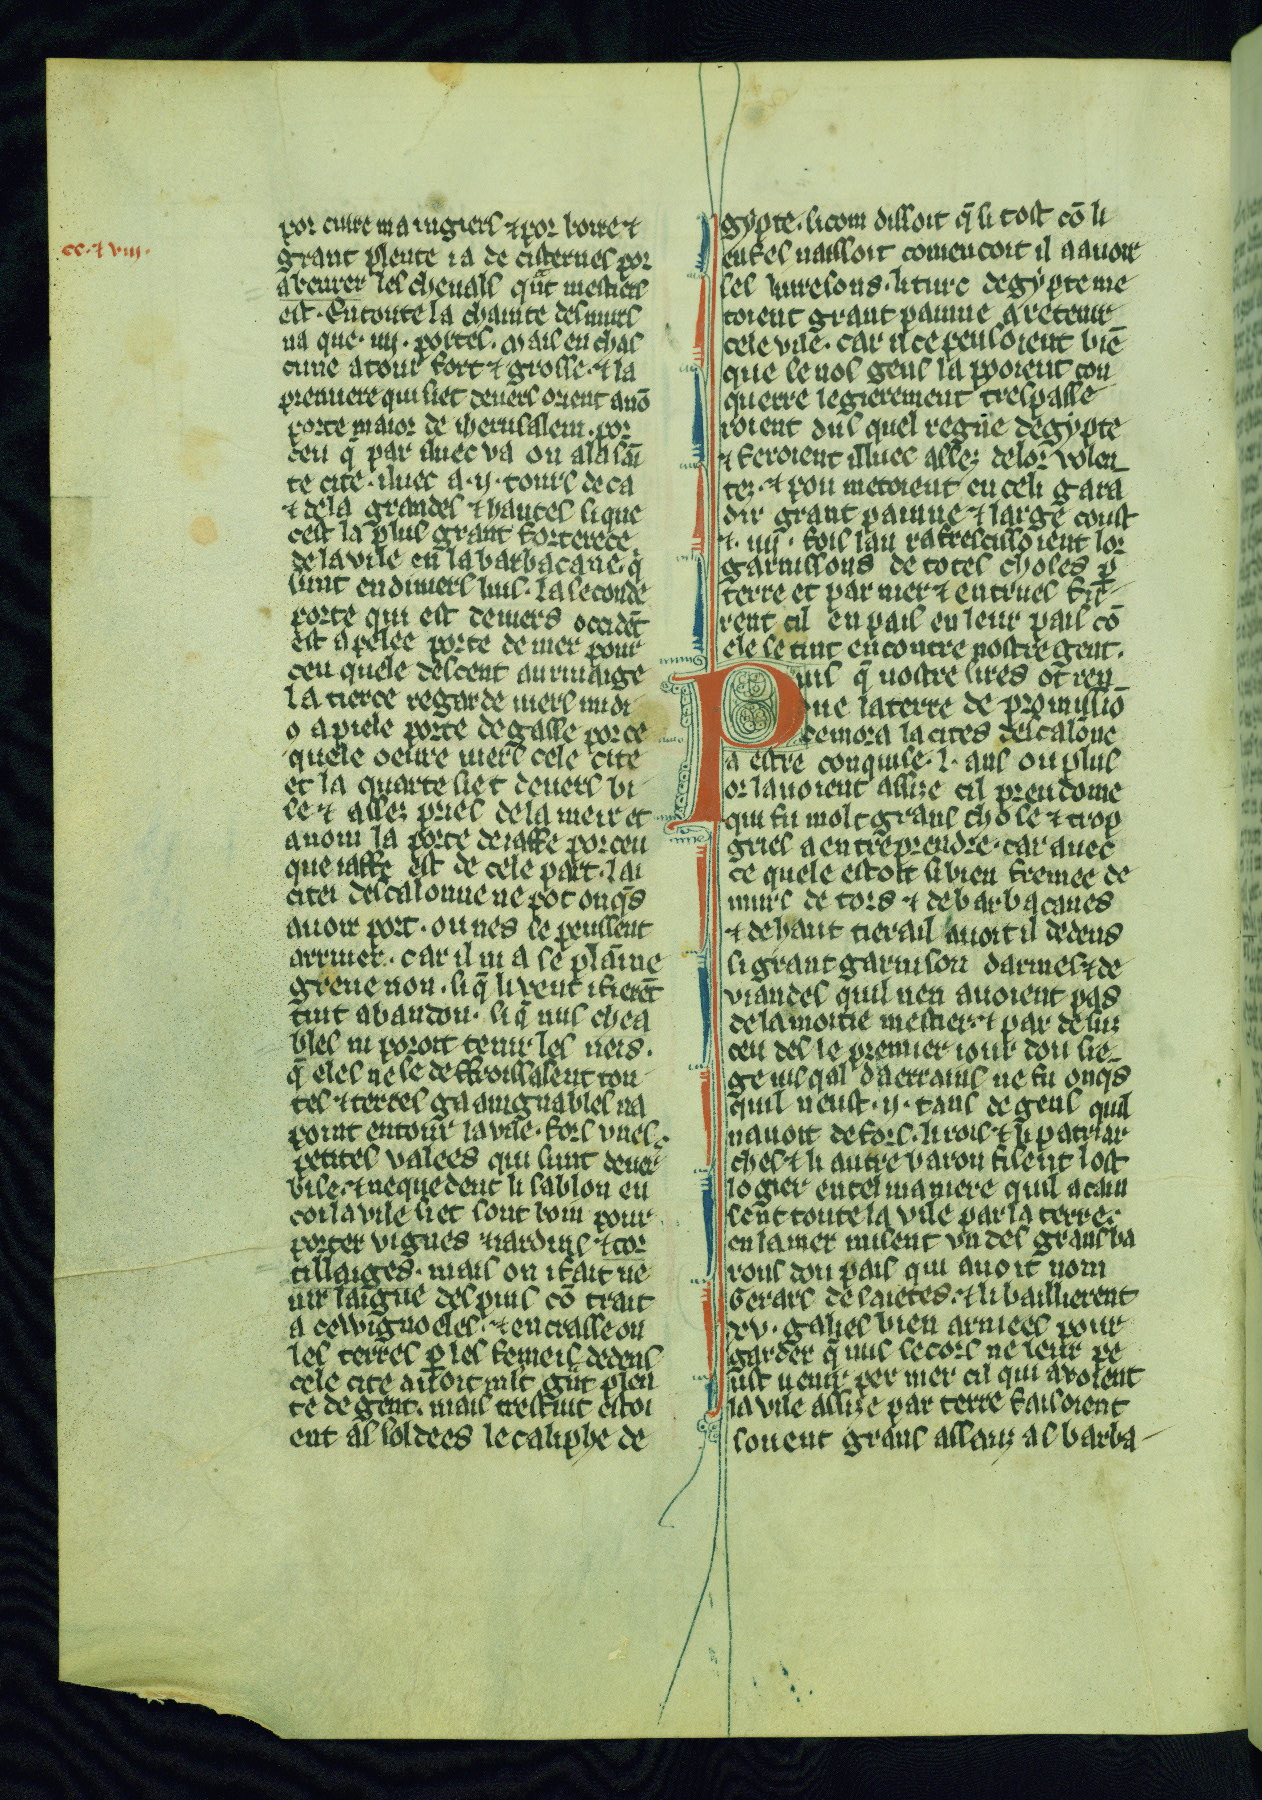 cc. ⁊ viii.
por cuire maingiers ⁊ por boire ⁊
grant plente i a de cisternes por
abeurer les cheuals qñt mestiers
est. En toute la chainte des murs
na que .iiii. portes. Mais en chas
cune a tour fort ⁊ grosse. ⁊ la
premiere qui siet deuers orient a nō
porte maior de iherusalem. por
ceu q̄ par iluec va on a la sāi
te cite. iluec a .ii. tours de ca
⁊ de la grandes ⁊ hautes si que
cest la plus grant forterece
de la vile en la barbacane. q̄
sunt en diuers huis. la seconde
porte qui est deuiers occidēt
est apelee porte de mer pour
ceu quele descent au riuaige
la tierce regarde uiers midi
o apiele porte de gasse por ce
quele oeure uiers cele cite
et la quarte siet deuers bi
se ⁊ assez pries de la meir et
a nom la porte de iaffe por ceu
que iaffe est de cele part. lai
citei descalonne ne pot onq̄s
auoir port. ou nes se peussent
arriuer. car il ni a se plāine
greue non. si q̄ li vent i fierēt
tint abandon. si q̄ nus chea
bles ni poroit tenir les neis.
q̄ eles ne se deffroissasent tou
tes ⁊ terres gaaingnables na
point entour la vile. fors vnes
petites valees qui sunt deuer
bise. ⁊ nequedent li sablon en
coi la vile siet sont boin pour
porter vignes ⁊ iardins ⁊ cor
tillaiges. mais on i fait ve
nir laigue des puis cō trait
a cewignoeles. ⁊ encrasse on
les terres p̱ les femeis. dedens
cele cite auoit mlt gñt plen
te de gent. mais trestuit estoi
ent as soldees le caliphe de
gypte. si com dissoit q̄ li tost cō li
enfes naissoit comencoit il a auoir
ses liuresons. li ture degypte me
toient grant painne a retenir
cele vile. car il ce pensoient biē
que se nos gens la pooient con
querre legierement trespasse
roient dus quel regñe degypte
⁊ feroient illuec assez de lor volen
tez. ⁊ pou metoient en celi gara
dir grant painne ⁊ large coust
⁊ .iiii. fois lan rafrescissoient lor
garnissons de totes choses p̱
terre et par mer ⁊ entrues fur
rent cil en pais en leur pais cō
ele se tint encontre nostre gent.
Puis q̄ nostre sires ot ren
due la terre de promissiō
demora la cites descalōne
a estre conquise .l. ans ou plus
or lauoient assize cil preudome
qui fu molt grans chose ⁊ trop
gries a entreprendre. car auec
ce quele estoit si bien fremee de
murs de tors ⁊ de barbacanes
⁊ de haut tierail auoit il dedens
si grant garnison darmes ⁊ de
viandes quil nen auoient pas
de la moitie mestier. ⁊ par desur
ceu des le premier iour dou sie
ge iusqal daerrains ne fu onq̄s
quil neust .ii. tans de gens quil
nauoit defors. li rois ⁊ li patriar
ches ⁊ li autre baron fisent lost
logier en tel maniere quil acain
sent toute la vile par la terre.
en la mer misent vn des grans ba
rons dou pais qui auoit nom
Gerars de saietes. ⁊ li baillierent
.xv. galies bien armees pour
garder q̄ nus secors ne leur pe
ust uenir per mer cil qui avoient
la vile assize par terre faisoient
souent grans assauz as barba